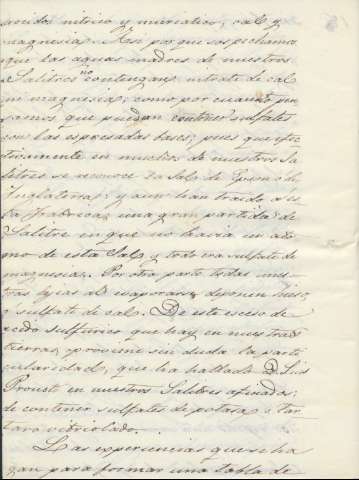 acido nitrico y muriatico, cal y
magnesia. Asi por que sospechamos
que las aguas madres de nuestros
Salitres no contengan nitrato de cal
ni magnesia; como por cuanto pen
samos que puedan contener sulfatos
con las espresadas bases; pues que efec
tivamente en muchos de nuestros Sa
litres se reconoce la Sal de Epson o de
Inglaterra; y aun han traido a es
ta fabrica, una gran partida de
Salitre en que no havia un ato
mo de esta Sal, y todo era sulfato de
magnesia. Por otra parte todas nues
tras lejias al evaporarse deponen hieso
o sulfato de cal. De este esceso de
acido sulfurico que hay en nuestras
tierras, proviene sin duda la parti
cularidad, que ha hallado D. Luis
Proust en nuestros Salitres afinados,
de contener sulfates de potasa o Tar
taro vitriolado.
Las experiencias que se ha
gan para formar una tabla de